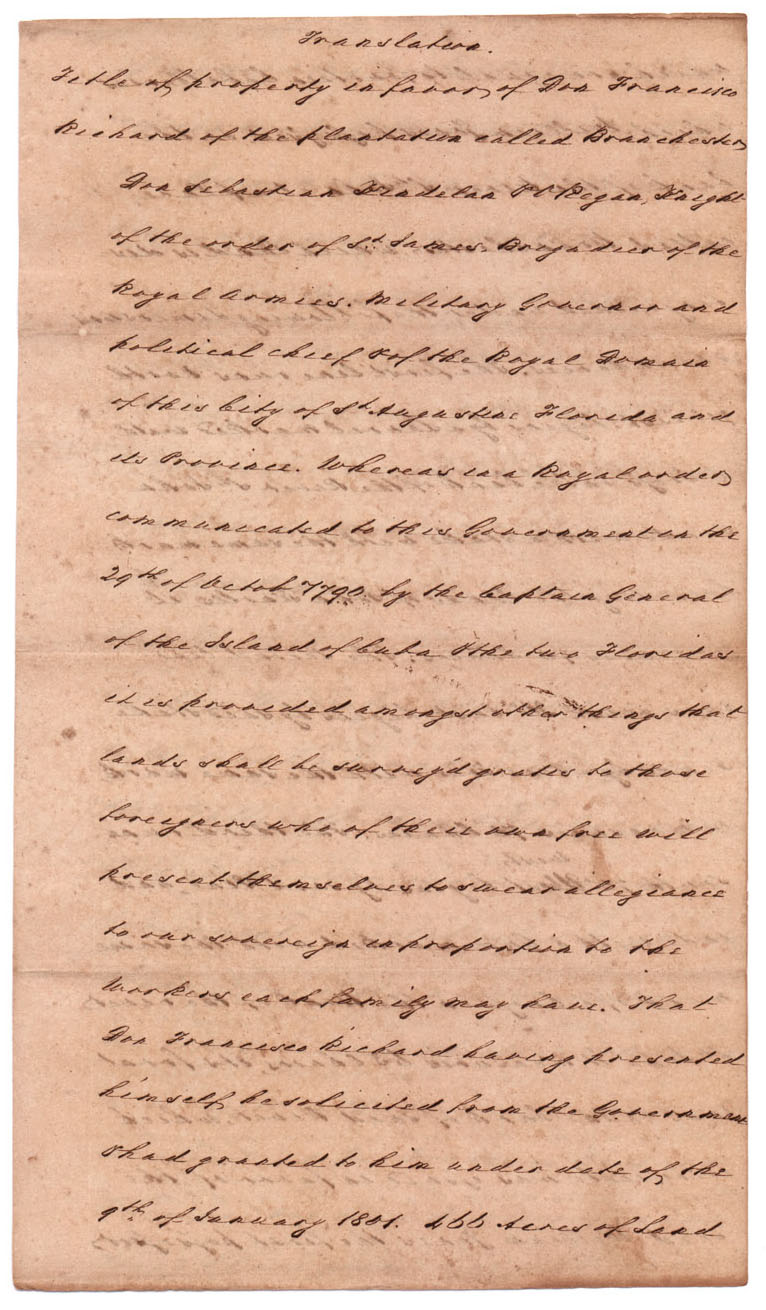 Translation.
Title of property in favor of Don Francisco
Richard of the plantation called Branchester
Don Sebastian Kindelan & O Regan, Knight
of the order of St. James. Brigadier of the
Royal Armies. Military Governor and
political chief & of the Royal Domain
of this City of St. Augustine Florida and
its Province. Whereas in a Royal order
communicated to this Government on the
29th of Octob 1790. by the Captain General
of the Island of Cuba & the two Floridas
it is provided amongst other things that
lands shall be survey'd gratis to those
foreigners who of their own free will
present themselves to swear allegiance
to our sovereign in proportion to the
Workers each family may have. That
Don Francisco Richard having presented
himself, he solicited from the Government
& had granted to him under date of the
9th of January 1801. 466 Acres of Land